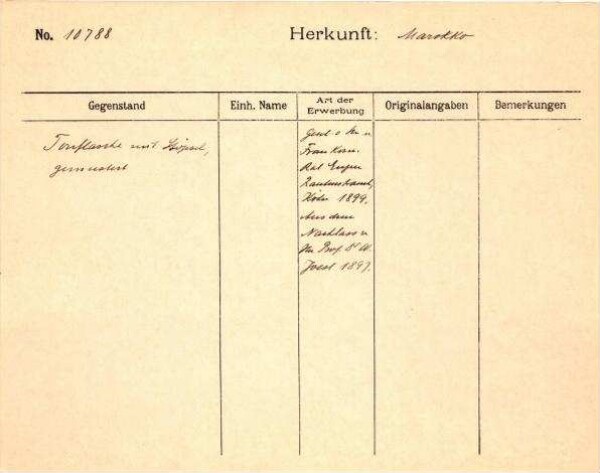 No. 10788 Herkunft: Marokko
Gegenstand
Einh. Name
Art der
Erwerbung
Originalangaben
Bemerkungen
Tonflasche mit Stöpsel,
gemustert
Gesch. v. Hr. u.
Frau Kom.
Rat Eugen
Rautenstrauch,
Köln 1899.
Aus dem
Nachlass v.
Hr. Prof. Dr W.
Joest 1897.